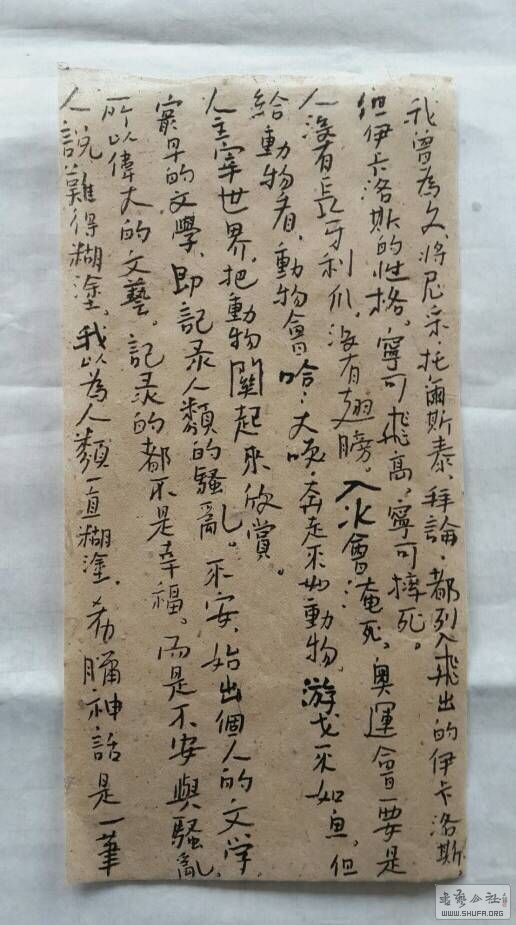 我曾為文將尼采、托爾斯泰、拜論、都列入飛出的伊卡洛斯、
但伊卡洛斯的性格、寧可飛高、寧可摔死。
人沒有長牙利爪、沒有翅膀。入水會淹死、奧運會要是
給動物看、動物會哈:大咲、奔走不如動物、游戈不如魚、但
人主宰世界、把動物關起來欣賞。
最早的文學、即記录人類的騷亂。不安、始出個人的文学、
所以偉大的文藝。記录的都不是幸福。而是不安與騷亂。
人說難得糊塗、我以為人類一直糊塗、希臘神話是一筆
書藝公社
WWW.SHUFA.ORG